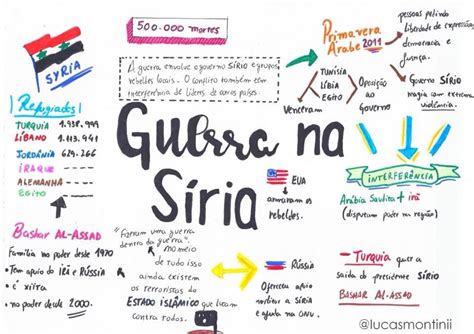 SYRIA
500.000 mortes
A guerra envolve o governo SÍRIO e grupos
rebeldes locais. O conflito também tem
interferência de líderes de outros países.
Primavera
Árabe 2011
pessoas pedindo
liberdade de expressão,
democracia e
justiça.
TUNÍSIA
LÍBIA
EGITO
Venceram
Oposição
ao
Governo
Governo SÍRIO
reagiu com extrema
violência.
Refugiados
TURQUIA 1.938.999
LÍBANO 1.113.941
JORDÂNIA 629.266
IRAQUE
ALEMANHA
EGITO
Guerra na
Síria
EUA
armaram os
rebeldes.
INTERFERÊNCIA
Arábia Saudita + irã
(disputam poder na região)
Bashar AL-ASSAD
Família no poder desde 1970
• Tem apoio do IRÃ e RÚSSIA
• é xiita
• no poder desde 2000.
"Fizeram uma guerra
dentro da guerra".
no meio
de tudo isso
ainda existem
os terroristas do
ESTADO ISLÂMICO que lutam
contra todos.
RÚSSIA
Ofereceu apoio
militar a SÍRIA e
ajuda na ONU.
Turquia quer a
saída do presidente SÍRIO
BASHAR AL-ASSAD
@lucasmontinii